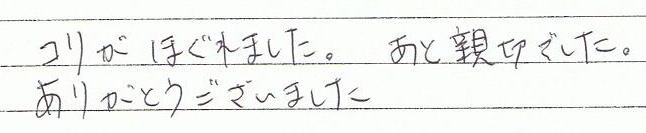 コリが ほぐれました。 あと親切でした。
ありがとうございました